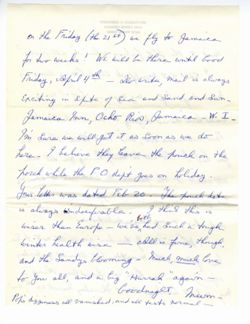 on the Friday (the 21st) we fly to Jamaica
for two weeks! We will be there until Good
Friday, April 4th – Do write, mail is always
exciting in spite of Sea and Sand and Sun –
Jamaica Inn, Ocho Rios, Jamaica – W. I.
I'm sure we will get it as soon as we do
here – I believe they leave the pouch on the
porch while the P.O dept goes on holiday.
Your letter was dated Feb 20 – The pouch date
is always I think this is
than Europe – we had such a tough
winter health wise – all is fine, though,
and the Sandys blooming – Much, much love
to you all, and a big "Hurrah" again –
Goodnight,
all vanished, and all tests normal –